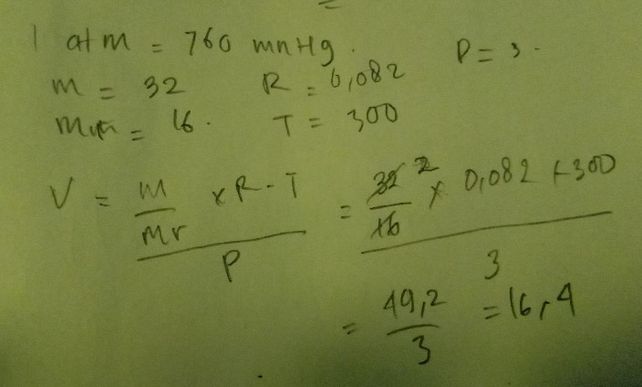 1 atm = 760 mmHg. P = 3.
m = 32 R = 0,082
Mr = 16. T = 300
V = m/Mr x R - T / P = 32/16 2 x 0,082 x 300 / 3
= 49,2/3 = 16,4